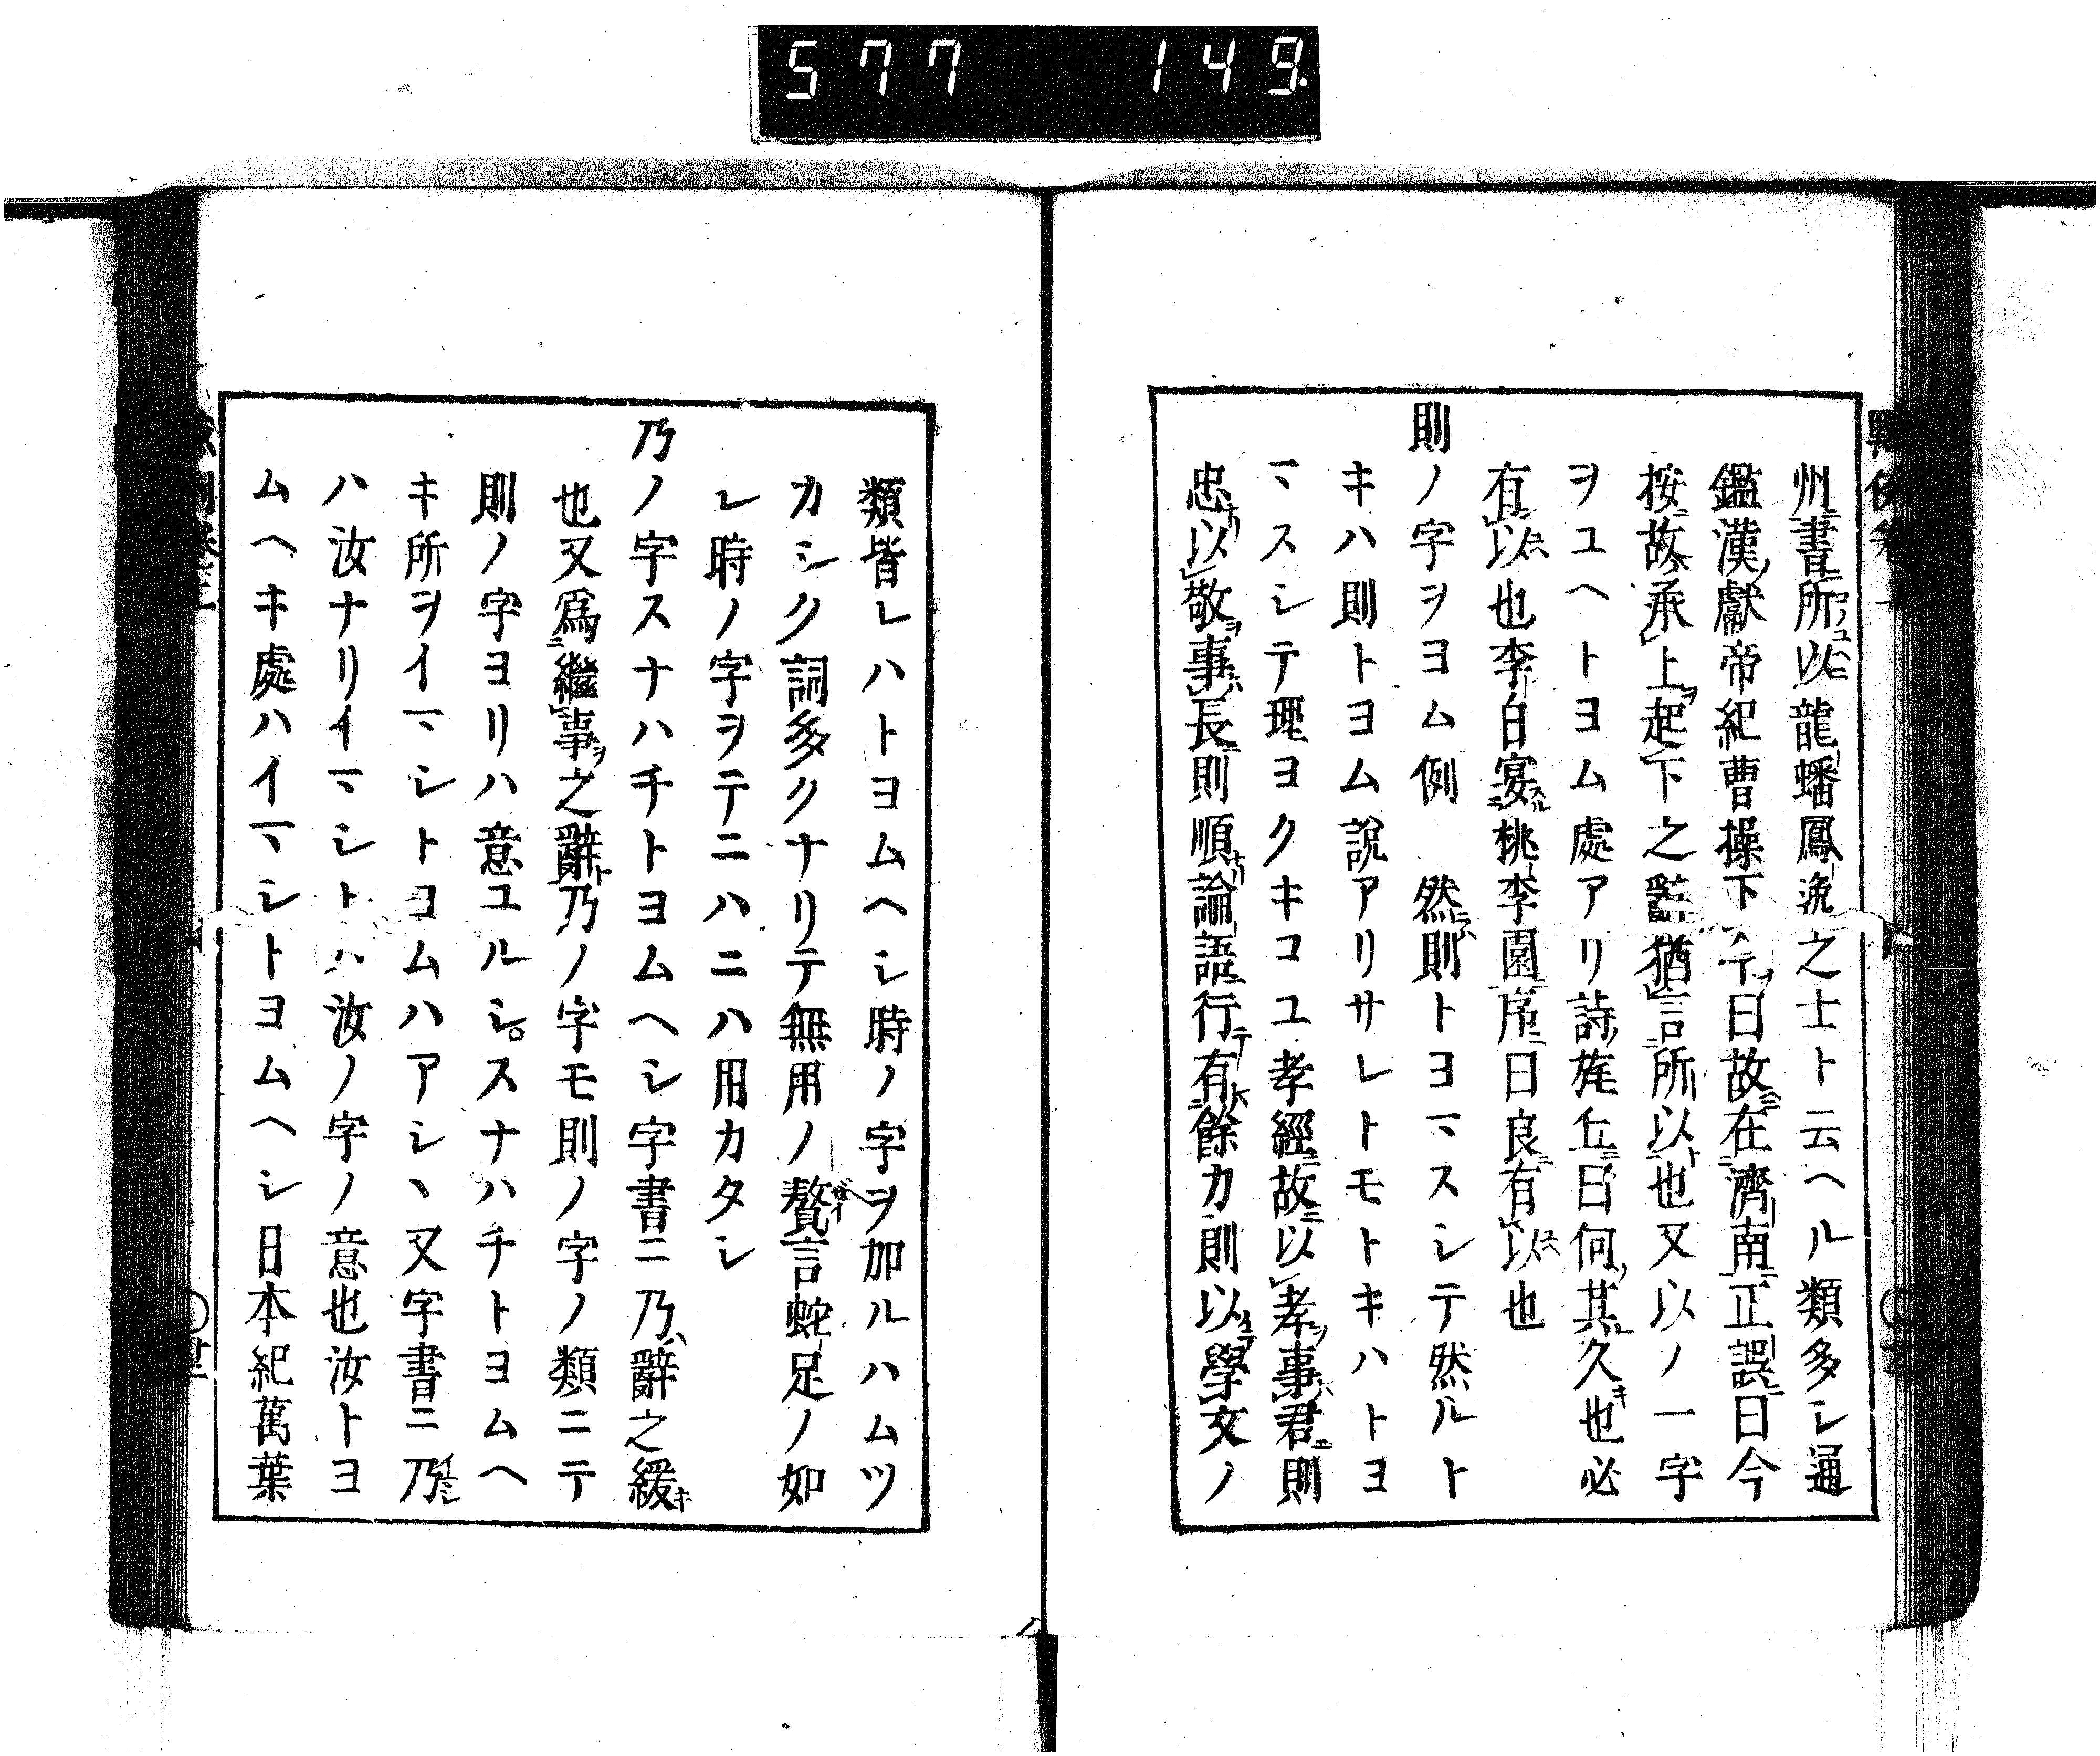 577 149
州書所以龍蟠鳳逸之士ト云ヘル類多シ通
鑑漢獻帝紀曹操下令曰故在濟南正誤曰今
按故承上起下之辭猶言所以也又以ノ一字
ヲユヘトヨム處アリ詩旄丘曰何其久也必
有以也李白宴桃李園序曰良有以也
則ノ字ヲヨム例 然則トヨマスシテ然ルト
キハ則トヨム說アリサレトモトキハトヨ
マスシテ理ヨクキコユ孝經故以孝事君則
忠以敬事長則順論語行有餘力則以學文ノ
類皆レハトヨムヘシ時ノ字ヲ加ルハムツ
カシク詞多クナリテ無用ノ贅言蛇足ノ如
レ時ノ字ヲテニハニハ用カタシ
乃ノ字スナハチトヨムヘシ字書ニ乃辭之緩
也又爲繼事之辭乃ノ字モ則ノ字ノ類ニテ
則ノ字ヨリハ意ユルシスナハチトヨムヘ
キ所ヲイマシトヨムハアシヽ又字書ニ乃
ハ汝ナリイマシトハ汝ノ字ノ意也汝トヨ
ムヘキ處ハイマシトヨムヘシ日本紀萬葉